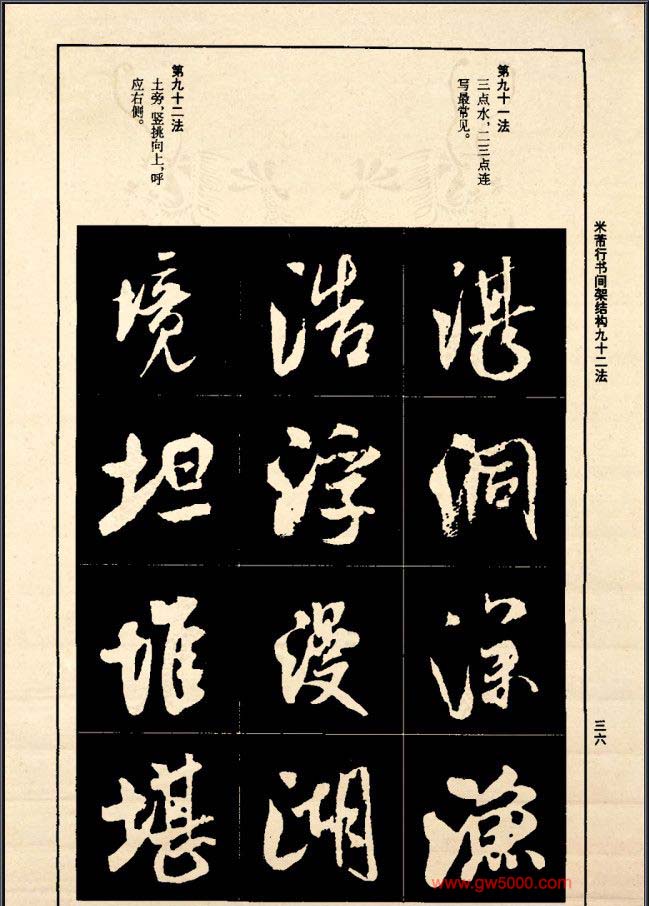 米芾行书间架结构九十二法
三六
第九十一法
三点水，二三点连
写最常见。
第九十二法
土旁，竖挑向上，呼
应右侧。
湛
洞
深
渔
浩
浮
漫
湖
境
坦
堆
堪
www.gw5000.com